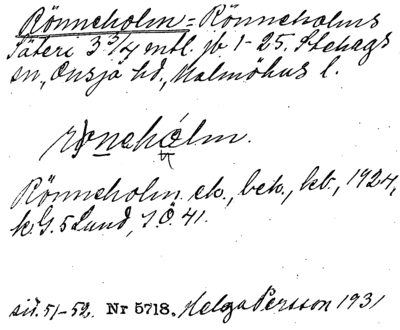 Rönneholm = Rönneholms
Säteri 3 3/4 mtl. jb 1-25. Stehags
sn, Onsjö hd., Malmöhus l.
Rönneholm ek., bek., kb., 1924,
k. G. 5 Lund, J.Ö. 41.
sid. 51-52. Nr 5718. Helga Persson 1931